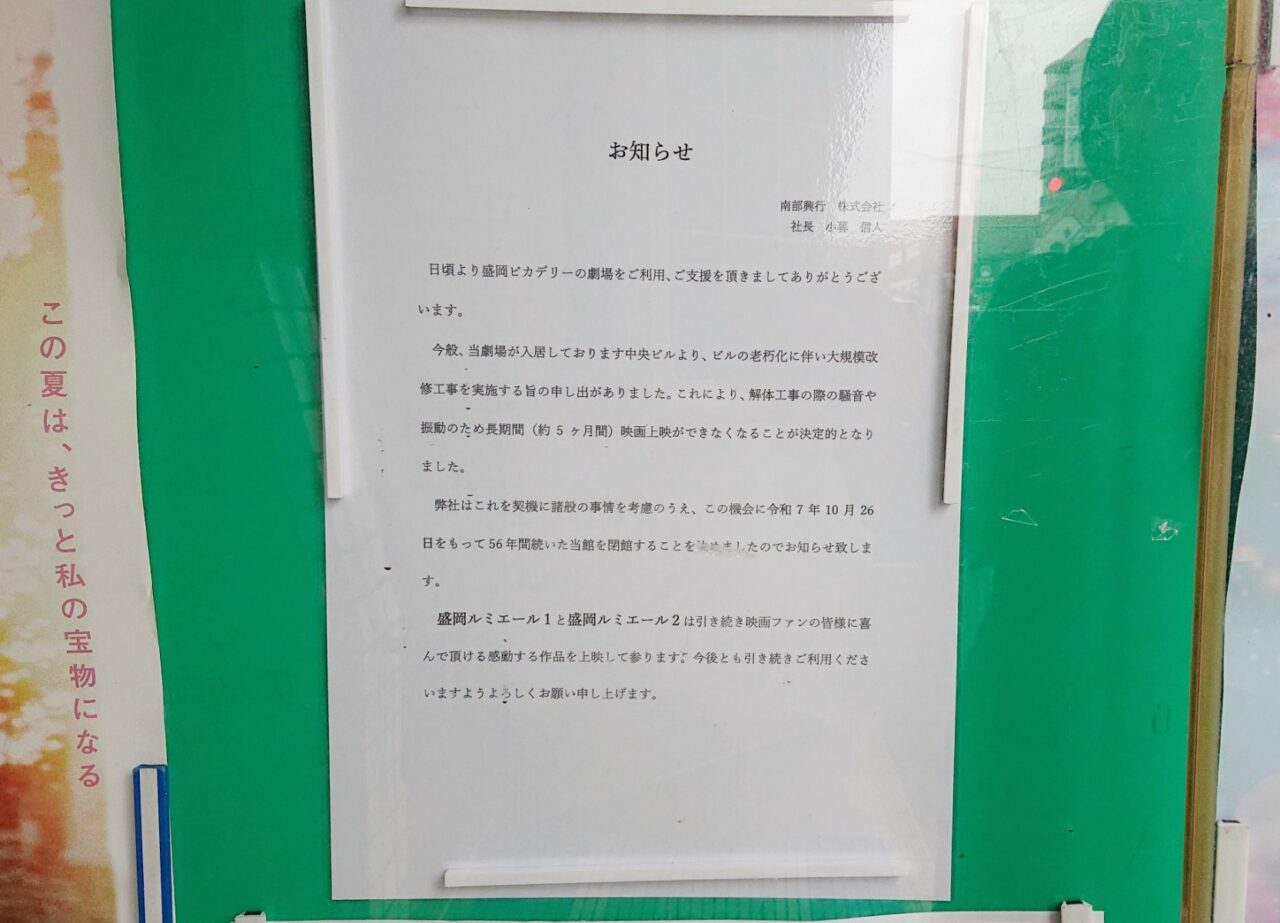 お知らせ
南部興行　株式会社
社長　小暮　信人
日頃より盛岡ピカデリーの劇場をご利用、ご支援を頂きましてありがとうござ
います。
今般、当劇場が入居しております中央ビルより、ビルの老朽化に伴い大規模改
修工事を実施する旨の申し出がありました。これにより、解体工事の際の騒音や
振動のため長期間（約 5 ヶ月間）映画上映ができなくなることが決定的となり
ました。
弊社はこれを契機に諸般の事情を考慮のうえ、この機会に令和 7 年 10 月 26
日をもって 56 年間続いた当館を閉館することを決めましたのでお知らせ致しま
す。
盛岡ルミエール 1 と盛岡ルミエール 2 は引き続き映画ファンの皆様に喜
んで頂ける感動する作品を上映して参ります。今後とも引き続きご利用くださ
いますようよろしくお願い申し上げます。
この夏は、きっと私の宝物になる